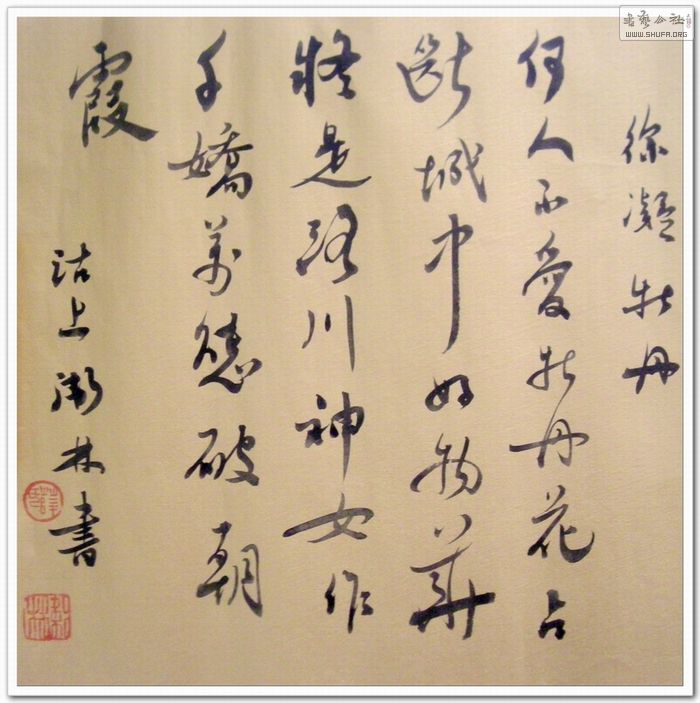 徐凝牡丹
何人不愛牡丹花占
斷城中好物華
疑是洛川神女作
千嬌萬態破朝
霞
沽上林書
書藝公社
WWW.SHUFA.ORG